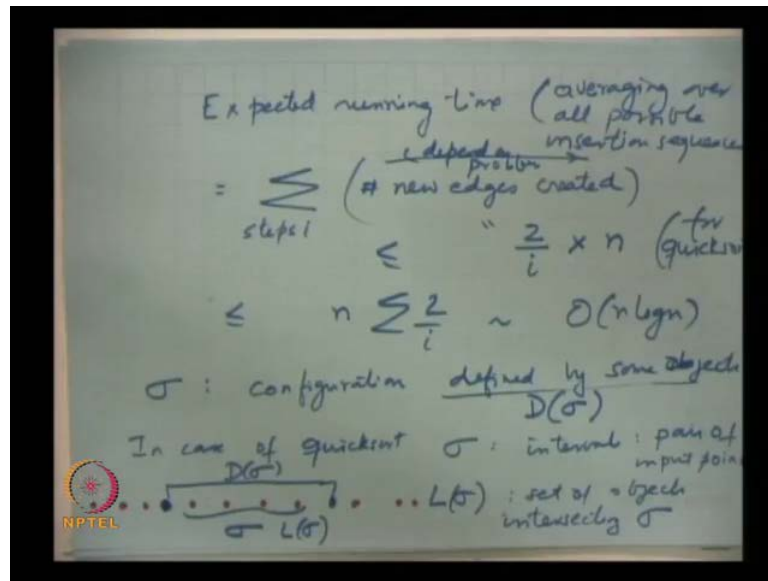 Expected running time (averaging over
all possible
insertion sequence
depend on
problem
= Σ (# new edges created)
steps i
≤ " 2/i × n (for
quicksort
≤ n Σ 2/i ~ O(n log n)
σ : configuration defined by some object
D(σ)
In case of quicksort σ : interval : pair of
input poin
D(σ)
L(σ) : set of object
σ L(σ) intersecting σ
NPTEL